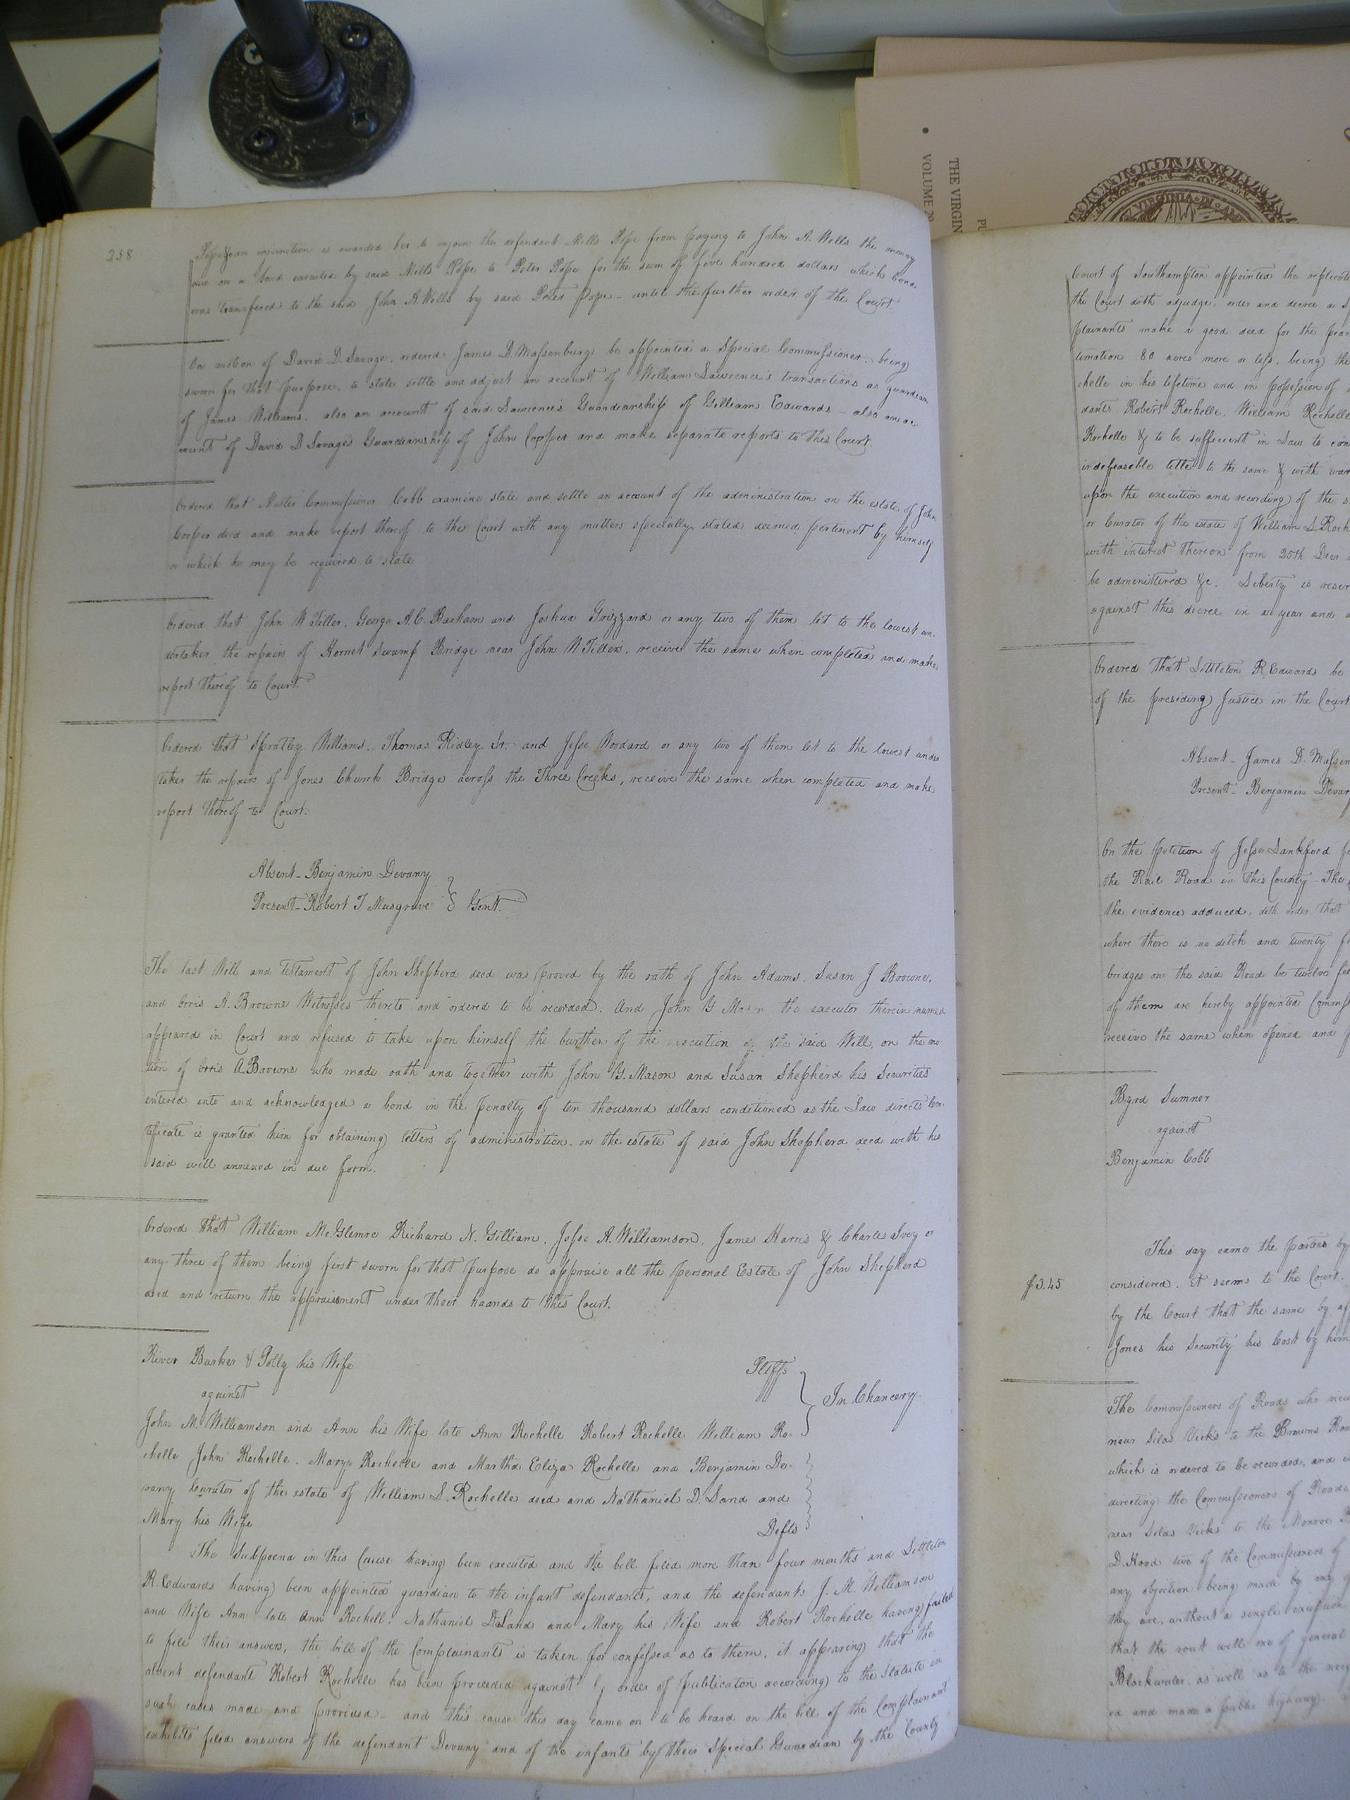 258
Pope & an injunction is awarded her to enjoin the defendant Mills Pope from paying to John A. Wells the money
due on a bond executed by said Mills Pope to Peter Pope for the sum of five hundred dollars which bond
was transfered to the said John A. Wells by said Peter Pope - until the further order of the Court
On motion of David D Savage, ordered James D. Massenburg be appointed a Special Commissioner, being
sworn for that purpose, to state settle and adjust an account of William Lawrence's transactions as guardian
of James Williams. also an account of said Lawrence's Guardianship of Gilliam Edwards - also an ac
count of David D Savage's Guardianship of John Copper and make separate reports to this Court
Ordered that Master Commissioner Cobb examine state and settle an account of the administration on the estate of John
Cooper decd and make report thereof to the Court with any matters specially stated deemed pertinent by himself
or which he may be required to state
Ordered that John W Tiller, George A.C. Barham and Joshua Grizzard or any two of them let to the lowest un-
dertaker the repairs of Hornet Swamp Bridge near John W Tillers, receive the same when completed and make
report thereof to Court.
Ordered that Spratley Williams, Thomas Ridley Sr. and Jesse Woodard or any two of them let to the lowest under
taker the repairs of Jones Church Bridge across the Three Creeks, receive the same when completed and make
report thereof to Court.
Absent - Benjamin Devany
Present - Robert T Musgrave } Gent.
The last Will and testament of John Shepherd decd was proved by the oath of John Adams, Susan J Browne,
and Orris A. Browne Witnesses thereto and ordered to be recorded. And John Y Mason the executor therein named
appeared in Court and refused to take upon himself the burthen of the execution of the said Will, on the mo
tion of Orris A. Browne who made oath and together with John Y. Mason and Susan Shepherd his Securities
entered into and acknowledged a bond in the penalty of ten thousand dollars conditioned as the Law directs Cer-
tificate is granted him for obtaining letters of administration on the estate of said John Shepherd decd with his
said will annexed in due form.
Ordered that William McGlemre Richard N. Gilliam, Jesse A. Williamson, James Harris & Charles Ivey or
any three of them being first sworn for that purpose do appraise all the personal Estate of John Shepherd
decd and return the appraisment under their haands to this Court.
River Barker & Polly his Wife Pltffs
against
In Chancery.
John M. Williamson and Ann his Wife late Ann Rochelle Robert Rochelle William Ro-
chelle John Rochelle. Mary Rochelle and Martha Eliza Rochelle and Benjamin De-
vany Curator of the estate of William S. Rochelle decd and Nathaniel D. Land and
Mary his Wife Defts
The Subpoena in this Cause having been executed and the bill filed more than four months and Littleton
R. Edwards having been appointed guardian to the infant defendants, and the defendants J. M. Williamson
and Wife Ann late Ann Rochell. Nathaniel D Land and Mary his Wife and Robert Rochelle having failed
to file their answers, the bill of the Complainants is taken for confessed as to them, it appearing that the
absent defendant Robert Rochelle has been proceeded against by order of publication according to the Statute in
such cases made and provided - and this cause this day came on to be heard on the bill of the Complainant
exhibits filed answers of the defendant Devany and of the infants by their Special Guardian by the County
Court of Southampton appointed the replicatio
the Court doth adjudge, order and decree a
plainants make a good deed for the
timation 80 acres more or less, being the
chelle in his lifetime and in possession of
dants Robert Rochelle. William Rochelle
Rochelle & to be sufficient in Law to con
indefeasable title to the same & with war
upon the execution and recording of the s
or Curator of the estate of William S. Roch
with interest thereon from 25th Decr
be administered &c. Liberty is reser
against this decree in a year and a
Ordered that Littleton R Edwards be
of the presiding Justice in the Court
Absent - James D. Massen
Present - Benjamin Devan
On the petition of Jesse Lankford
the Rail Road in this County - The
the evidence adduced, doth order that
where there is no ditch and twenty f
bridges on the said Road be twelve fe
of them are hereby appointed Commiss
receive the same when opened and
Byrd Sumner
against
Benjamin Cobb
This day came the parties by
$3.45
considered, it seems to the Court.
by the Court that the same by
Jones his Security his Cost by him
The Commissioners of Roads who
near Silas Vicks to the Browns Roa
which is ordered to be recorded, and
directing the Commissioners of Roads
near Silas Vicks to the Monroe
D. Hood two of the Commissioners of
any objection being made by any
they are, without a single
that the rout will one of general
Blackwater, as well as to the neig
ed and made a public highway.
THE VIRGIN
VOLUME 20
VIRGINIA